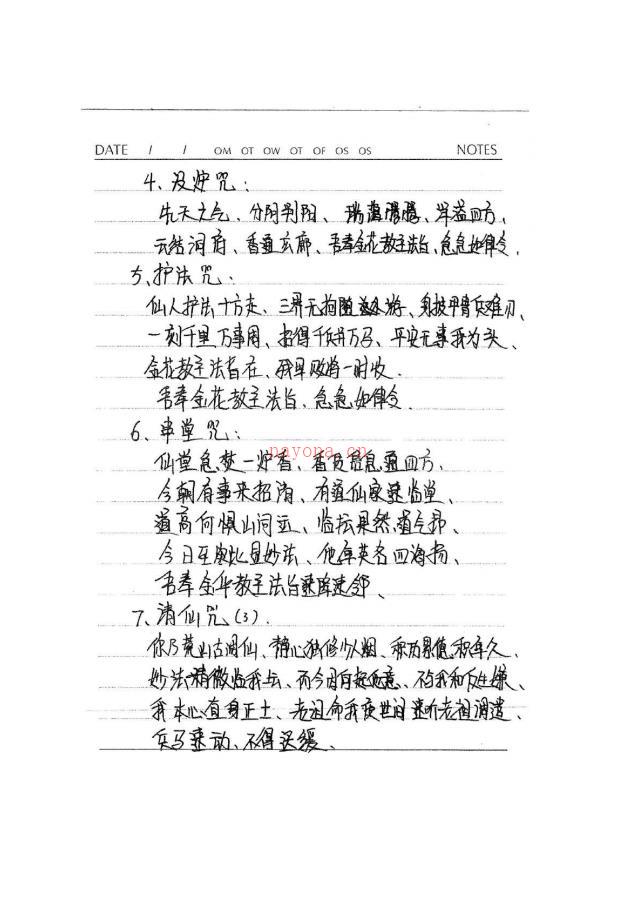 DATE / / OM OT OW OT OF OS OS NOTES
4、及炉咒：
先天之气、分阴判阳、瑞蔼腾腾、洋溢四方、
云结洞府、香通玄廊、吾奉金花教主法旨、急急如律令、
5、护法咒：
仙人护法十方走、三界无拘随处游、身披甲胄兵难刃、
一刻千里万事周、招得千兵万马、平安无事我为头、
金花教主法旨在、我早败将一时收．
吾奉金花教主法旨、急急如律令．
6、串堂咒：
仙堂急焚一炉香、香烟急急通四方、
今朝有事来招请、有道仙家速临堂、
道高何惧山河远、临坛果然道气昂、
今日至此显妙法、他年英名四海扬、
吾奉金华教主法旨速降
7、清仙咒（3）．
你乃荒山古洞仙、静心独修少人烟、积功累德积年久、
妙法稍微临我与、而今
我本心直身正土、老祖命我度世间
兵马速动、不得迟缓、
nayona.cn